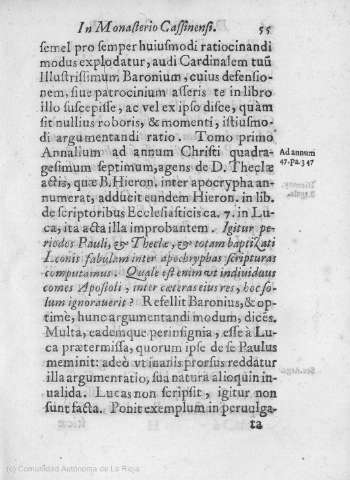 In Monasterio Cassinensi. 55
semel pro semper huiusmodi ratiocinandi
modus explodatur, audi Cardinalem tuũ
Illustrissimum Baronium, cuius defensio-
nem, siue patrocinium asseris te in libro
illo suscepisse, ac vel ex ipso disce, quàm
sit nullius roboris, & momenti, istiusmo-
di argumentandi ratio. Tomo primo
Annalium ad annum Christi quadra-
gesimum septimum, agens de D. Theclæ
actis, quæ B. Hieron. inter apocrypha an-
numerat, adducit eundem Hieron. in lib.
de scriptoribus Ecclesiasticis ca. 7. in Lu-
ca, ita acta illa improbantem. Igitur pe-
riodos Pauli, & Theclæ, & totam baptizati
Leonis fabulam inter apochryphas scripturas
computamus. Quale est enim vt indiuiduus
comes Apostoli, inter cæteras eius res, hoc so-
lum ignorauerit? Refellit Baronius, & op-
timè, hunc argumentandi modum, dicẽs.
Multa, eademque perinsignia, esse à Lu-
ca prætermissa, quorum ipse de se Paulus
meminit: adeò vt inanis prorsus reddatur
illa argumentatio, sua natura alioquin in-
ualida. Lucas non scripsit, igitur non
sunt facta. Ponit exemplum in peruulga-
ta
Ad annum
47. pa. 347
(c) Comunidad Autónoma de La Rioja